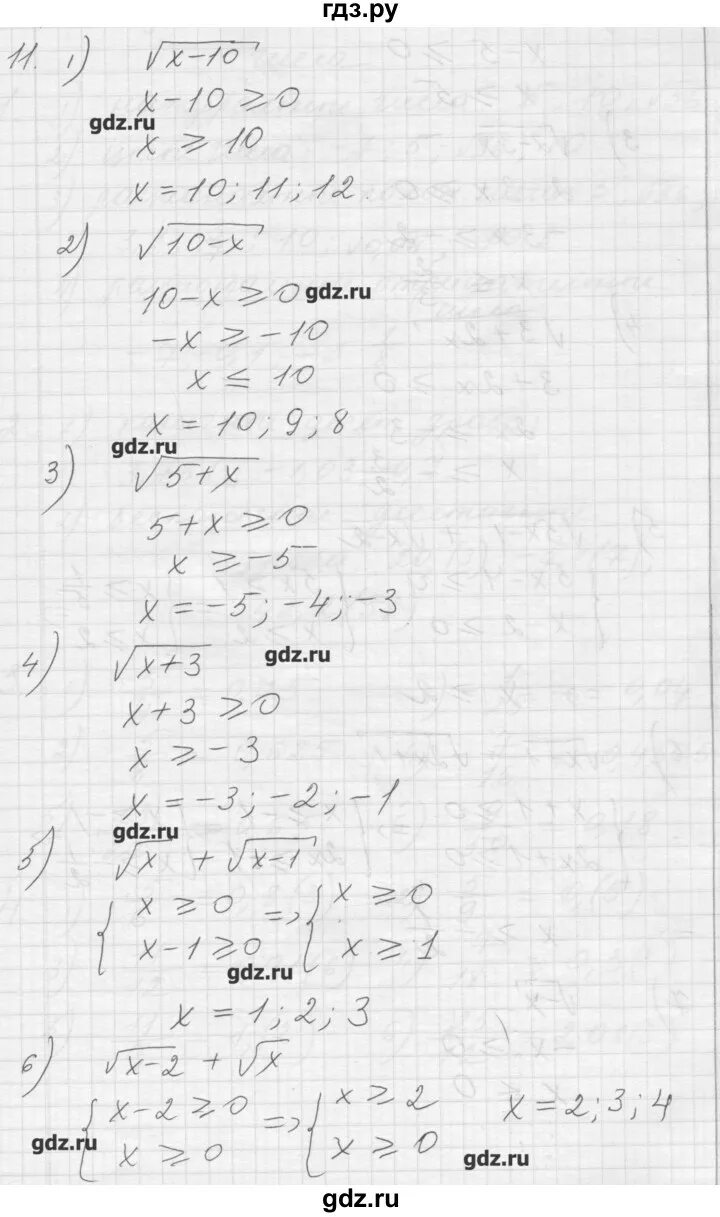 гдз.ру
11. 1) √x-10
x-10 ⩾ 0
gdz.ru
x ⩾ 10
x = 10; 11; 12.
2) √10-x
10-x ⩾ 0 gdz.ru
-x ⩾ -10
x ⩽ 10
x = 10; 9; 8
gdz.ru
3) √5+x
5+x ⩾ 0
x ⩾ -5
x = -5; -4; -3
4) √x+3 gdz.ru
x+3 ⩾ 0
x ⩾ -3
x = -3; -2; -1
gdz.ru
5) √x + √x-1
{ x ⩾ 0 => { x ⩾ 0
x-1 ⩾ 0 x ⩾ 1
gdz.ru
x = 1; 2; 3
6) √x-2 + √x
{ x-2 ⩾ 0 => { x ⩾ 2 x = 2; 3; 4
x ⩾ 0 x ⩾ 0
gdz.ru gdz.ru
gdz.ru